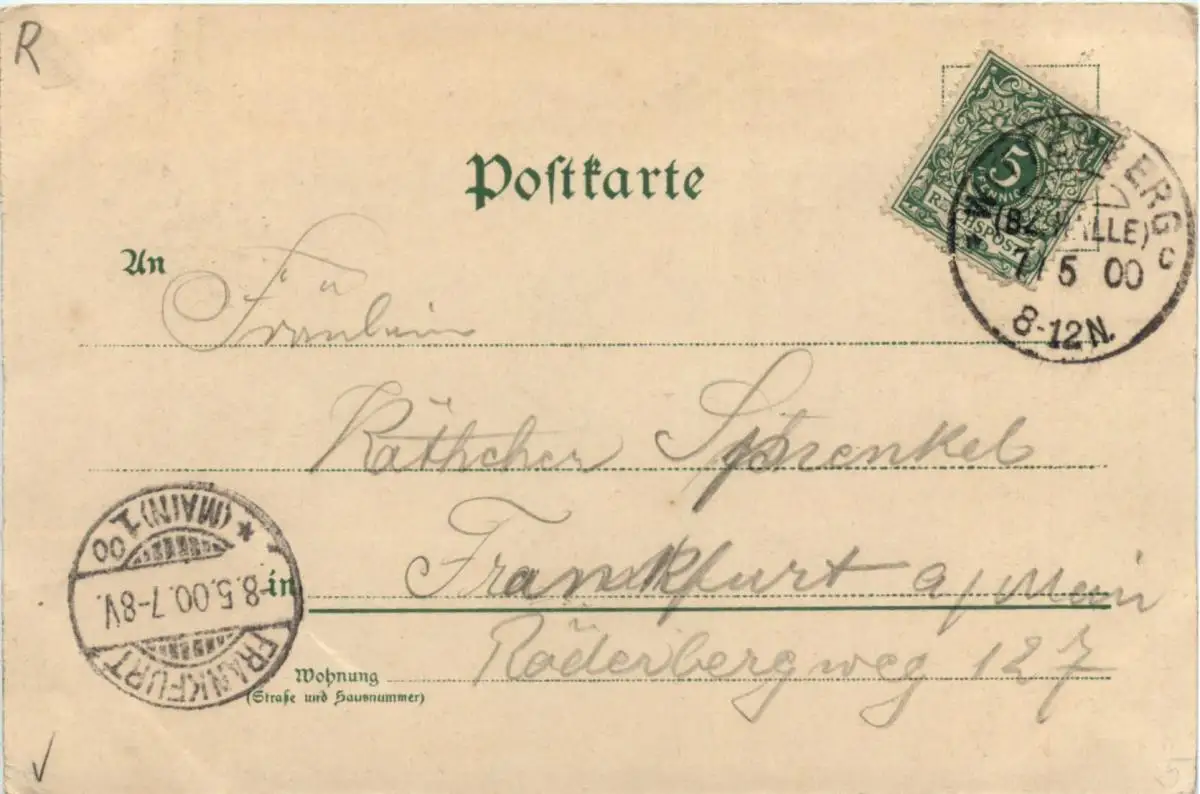 R
Postkarte
5
PFENNIG
REICHSPOST
(BZ. HALLE)
7 5 00
8-12N.
c
An
Fräulein
Käthchen Sprenkel
in Frankfurt a/Main
Wohnung Röderbergweg 127
(Straße und Hausnummer)
FRANKFURT
(MAIN) 1
00
8.5.00.7-8V.
5